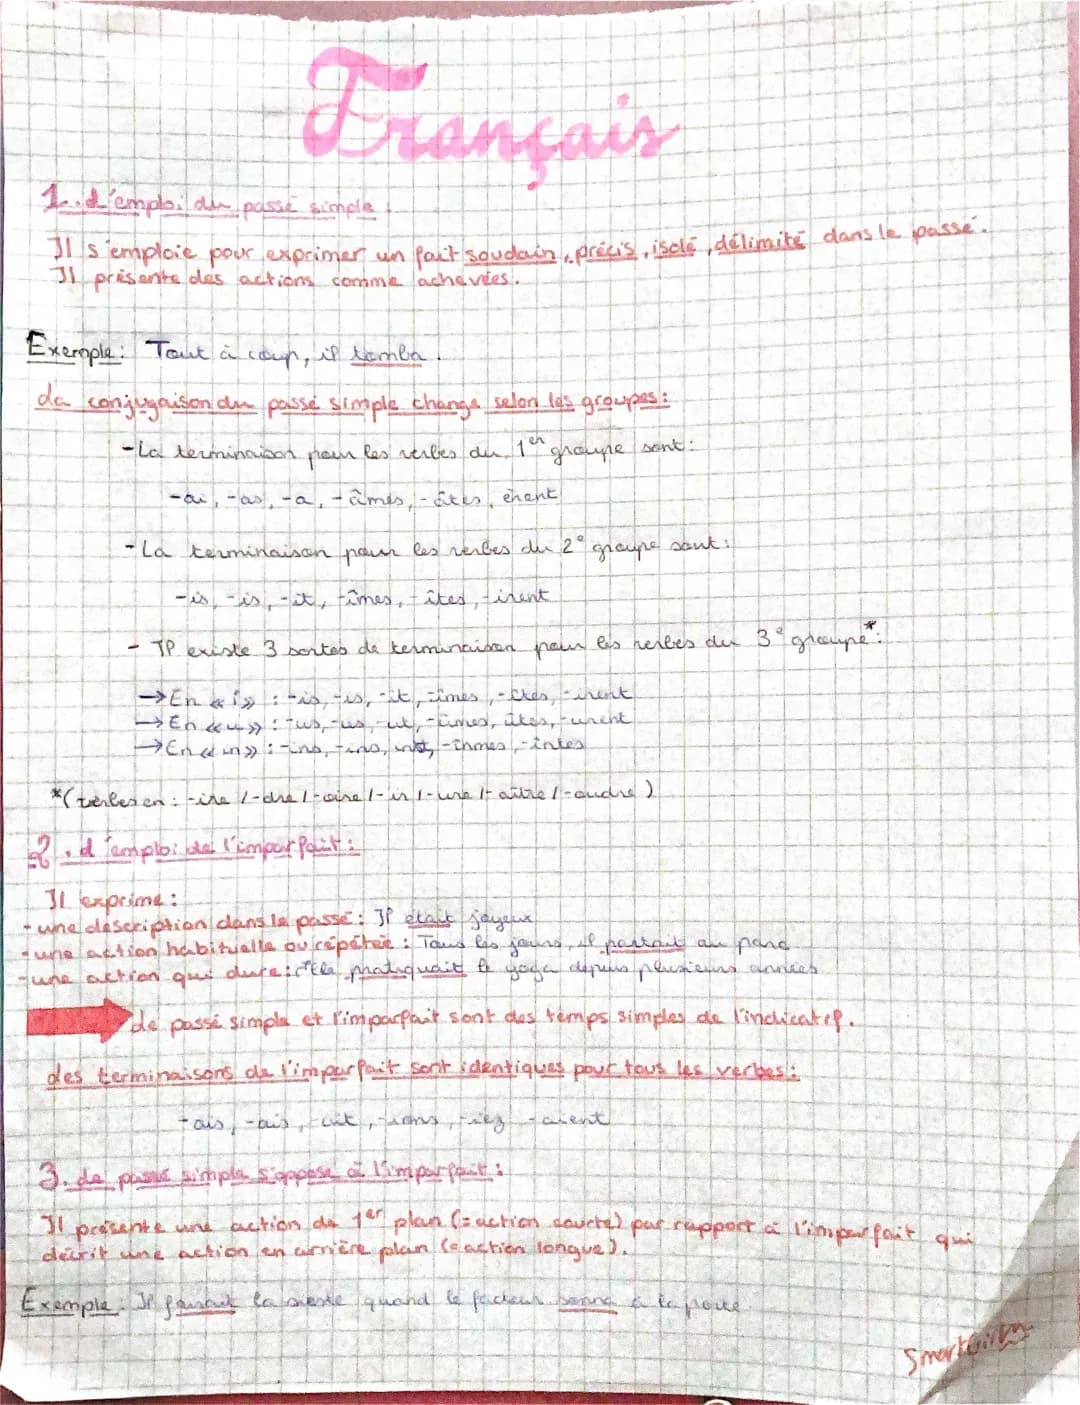 Français
1. L'emploi du passé simple :
Il s'emploie pour exprimer un fait soudain, précis, isolé, délimité dans le passé.
Il présente des actions comme achevées.
Exemple : Tout à coup, il tomba.
La conjugaison du passé simple change selon les groupes :
-La terminaison pour les verbes du 1er groupe sont :
-ai, -as, -a, -âmes, -âtes, èrent
-La terminaison pour les verbes du 2e groupe sont :
-is, -is, -it, -îmes, -îtes, -irent
- Il existe 3 sortes de terminaison pour les verbes du 3e groupe* :
→En « i » : -is, -is, -it, -îmes, -îtes, -irent
→En « u » : -us, -us, -ut, -ûmes, ûtes, -urent
→En « in » : -ins, -ins, int, -înmes, -întes
*(verbes en : -ire /-dre /-oire /-ir /-ure /-aître /-oudre)
2. L'emploi de l'imparfait :
Il exprime :
-une description dans le passé : Il était joyeux
-une action habituelle ou répétée : Tous les jours, il partait au parc
-une action qui dure : Elle pratiquait le yoga depuis plusieurs années
Le passé simple et l'imparfait sont des temps simples de l'indicatif.
Les terminaisons de l'imparfait sont identiques pour tous les verbes :
-ais, -ais, -ait, -ions, -iez, -aient
3. Le passé simple s'oppose à l'imparfait :
Il présente une action de 1er plan (= action courte) par rapport à l'imparfait qui
décrit une action en arrière plan (= action longue).
Exemple : Il faisait la sieste quand le facteur sonna à la porte